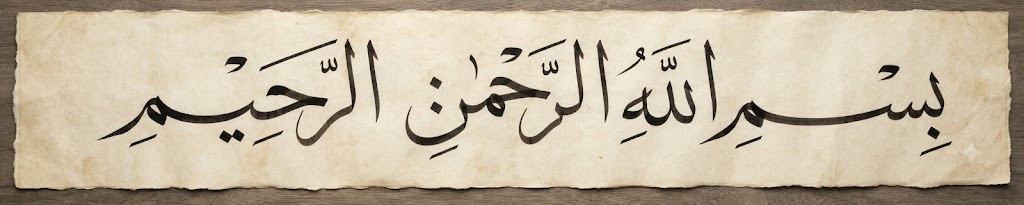 بِسْمِ اللَّهُِ الرَّحْمٰنِ الرَّحِيْمِ